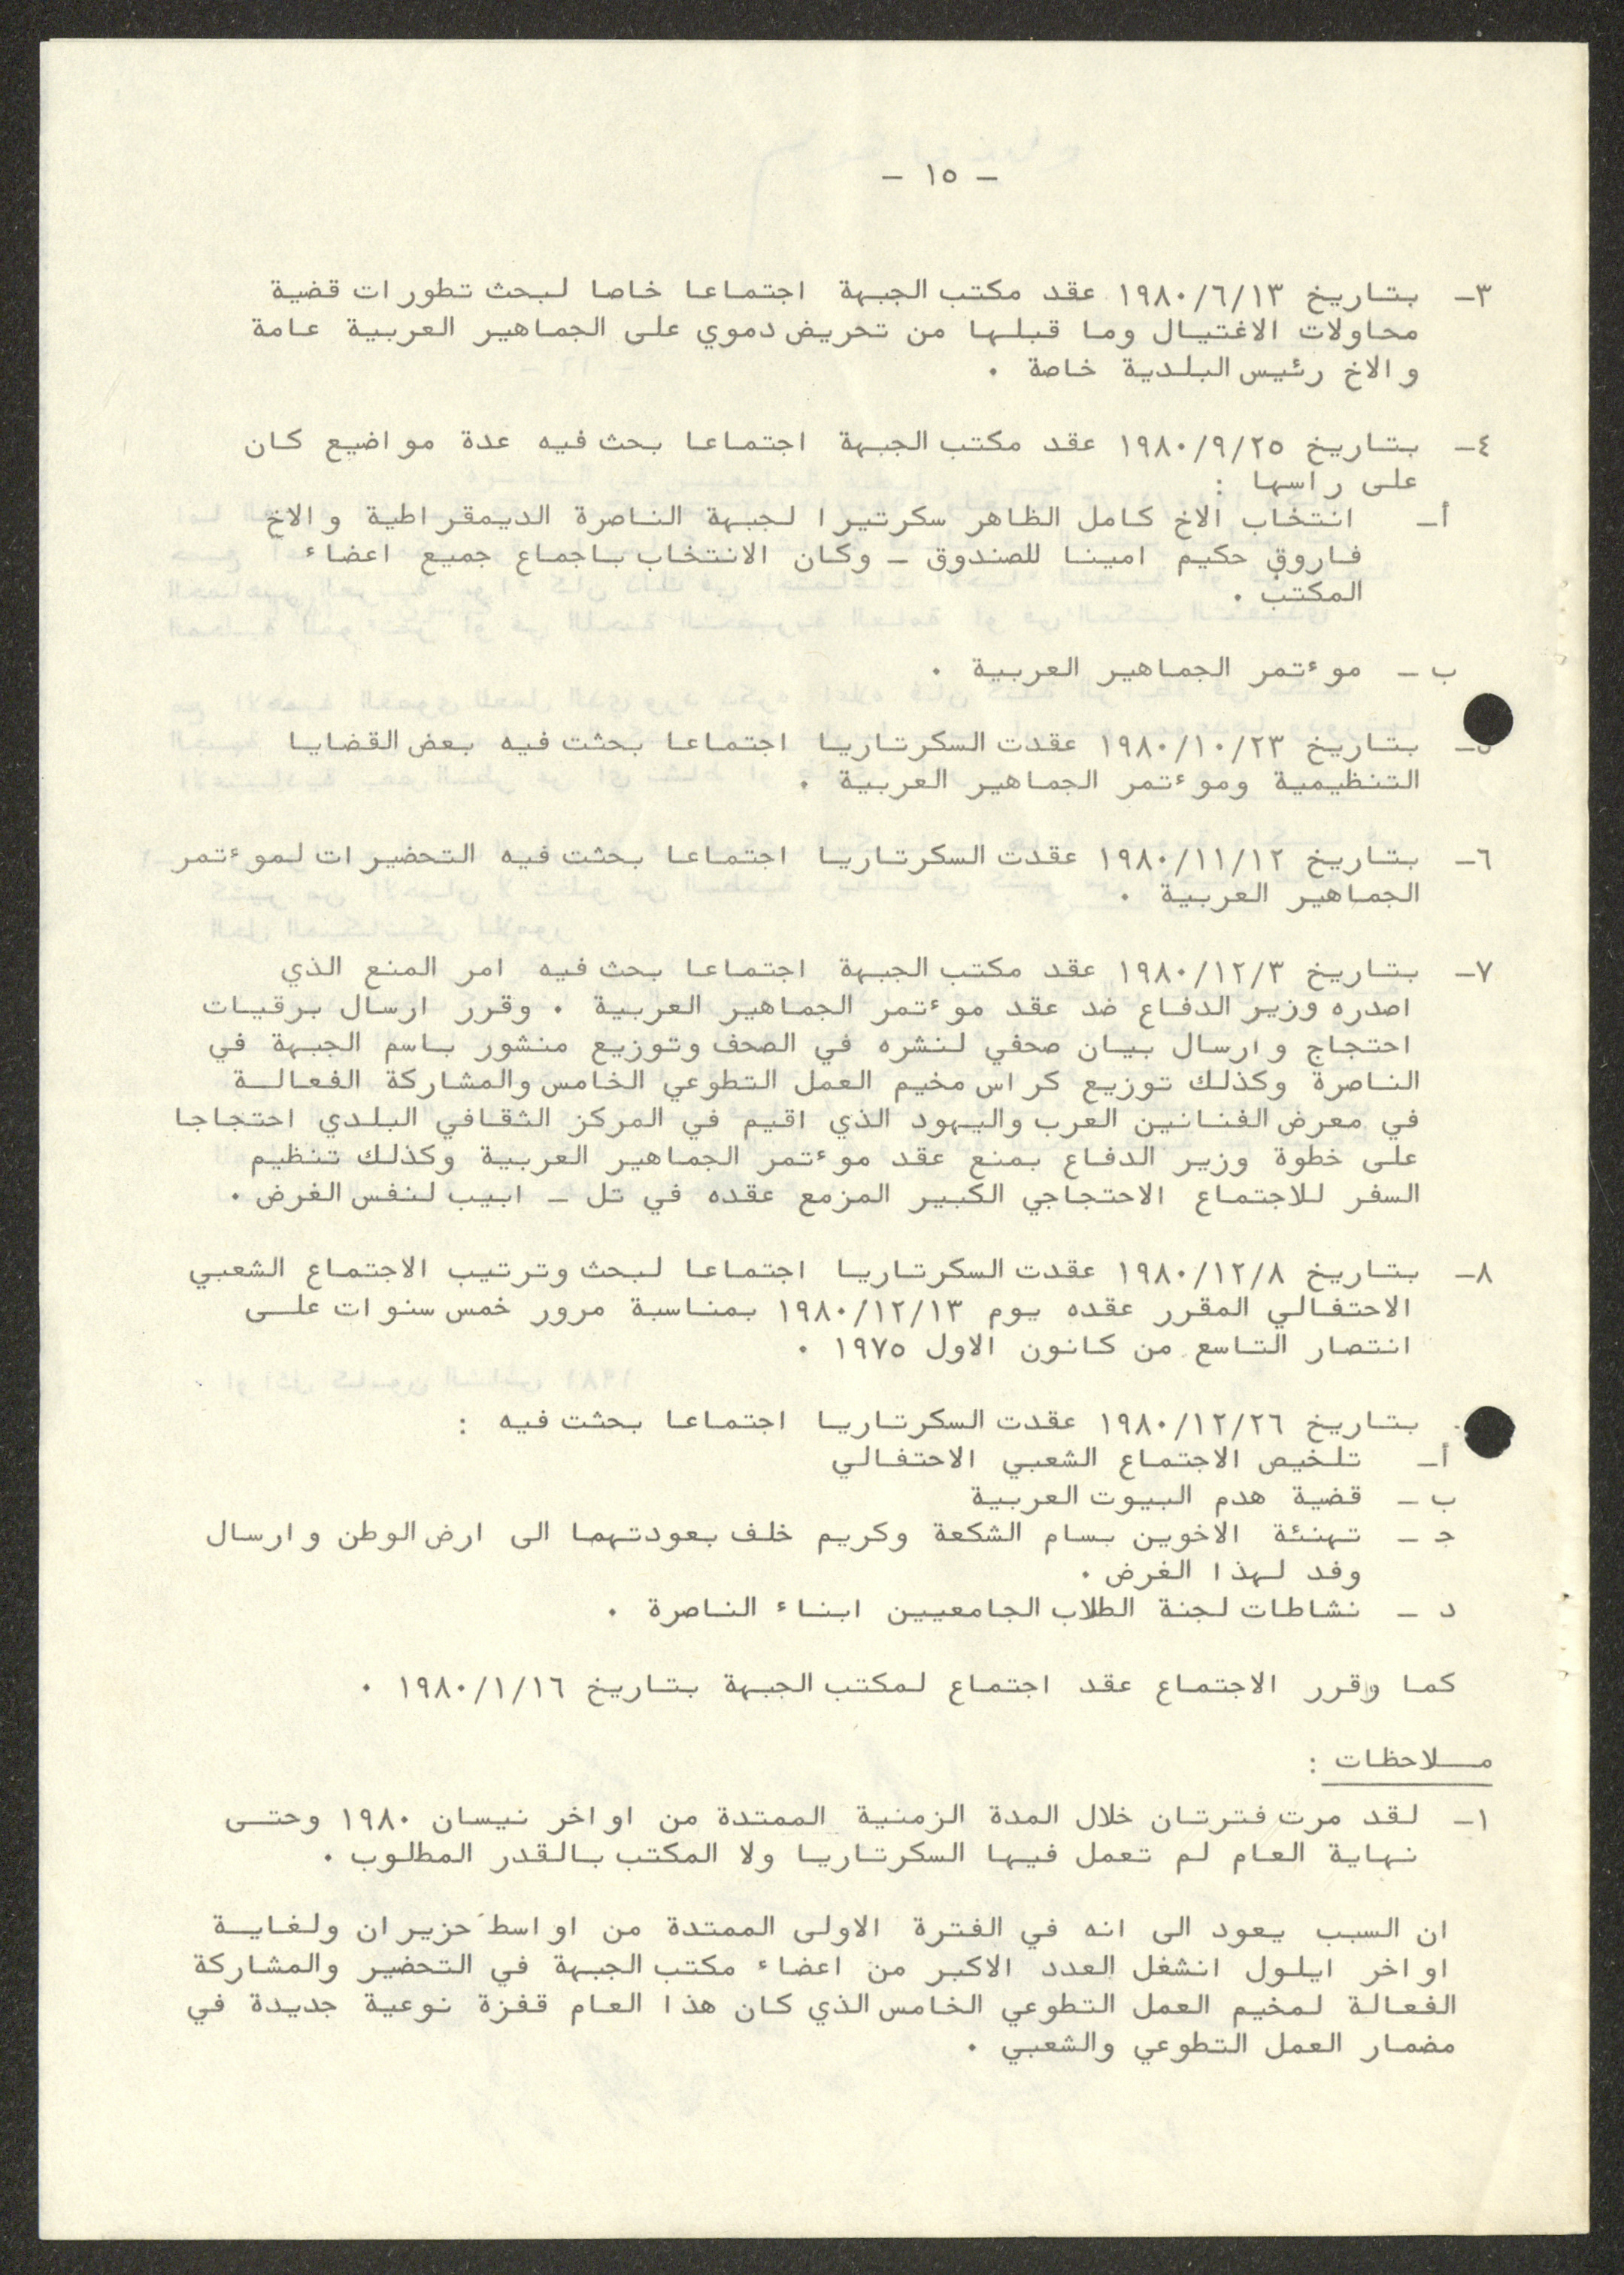 - ١٥ -
٣- بتاريخ ١٩٨٠/٦/١٣ عقد مكتب الجبهة اجتماعا خاصا لبحث تطورات قضية
محاولات الاغتيال وما قبلها من تحريض دموي على الجماهير العربية عامة
والاخ رئيس البلدية خاصة .
٤- بتاريخ ١٩٨٠/٩/٢٥ عقد مكتب الجبهة اجتماعا بحث فيه عدة مواضيع كان
على راسها :
أ- انتخاب الاخ كامل الظاهر سكرتيرا لجبهة الناصرة الديمقراطية والاخ
فاروق حكيم امينا للصندوق - وكان الانتخاب باجماع جميع اعضاء
المكتب .
ب - موءتمر الجماهير العربية .
٥- بتاريخ ١٩٨٠/١٠/٢٣ عقدت السكرتاريا اجتماعا بحثت فيه بعض القضايا
التنظيمية وموءتمر الجماهير العربية .
٦- بتاريخ ١٩٨٠/١١/١٢ عقدت السكرتاريا اجتماعا بحثت فيه التحضيرات لموءتمر
الجماهير العربية .
٧- بتاريخ ١٩٨٠/١٢/٣ عقد مكتب الجبهة اجتماعا بحث فيه امر المنع الذي
اصدره وزير الدفاع ضد عقد موءتمر الجماهير العربية . وقرر ارسال برقيات
احتجاج وارسال بيان صحفي لنشره في الصحف وتوزيع منشور باسم الجبهة في
الناصرة وكذلك توزيع كراس مخيم العمل التطوعي الخامس والمشاركة الفعالة
في معرض الفنانين العرب واليهود الذي اقيم في المركز الثقافي البلدي احتجاجا
على خطوة وزير الدفاع بمنع عقد موءتمر الجماهير العربية وكذلك تنظيم
السفر للاجتماع الاحتجاجي الكبير المزمع عقده في تل - ابيب لنفس الغرض .
٨- بتاريخ ١٩٨٠/١٢/٨ عقدت السكرتاريا اجتماعا لبحث وترتيب الاجتماع الشعبي
الاحتفالي المقرر عقده يوم ١٩٨٠/١٢/١٣ بمناسبة مرور خمس سنوات على
انتصار التاسع من كانون الاول ١٩٧٥ .
بتاريخ ١٩٨٠/١٢/٢٦ عقدت السكرتاريا اجتماعا بحثت فيه :
أ- تلخيص الاجتماع الشعبي الاحتفالي
ب - قضية هدم البيوت العربية
ج - تهنئة الاخوين بسام الشكعة وكريم خلف بعودتهما الى ارض الوطن وارسال
وفد لهذا الغرض .
د - نشاطات لجنة الطلاب الجامعيين ابناء الناصرة .
كما وقرر الاجتماع عقد اجتماع لمكتب الجبهة بتاريخ ١٩٨٠/١/١٦ .
مـلاحظات :
١- لقد مرت فترتان خلال المدة الزمنية الممتدة من اواخر نيسان ١٩٨٠ وحتى
نهاية العام لم تعمل فيها السكرتاريا ولا المكتب بالقدر المطلوب .
ان السبب يعود الى انه في الفترة الاولى الممتدة من اواسط حزيران ولغاية
اواخر ايلول انشغل العدد الاكبر من اعضاء مكتب الجبهة في التحضير والمشاركة
الفعالة لمخيم العمل التطوعي الخامس الذي كان هذا العام قفزة نوعية جديدة في
مضمار العمل التطوعي والشعبي .